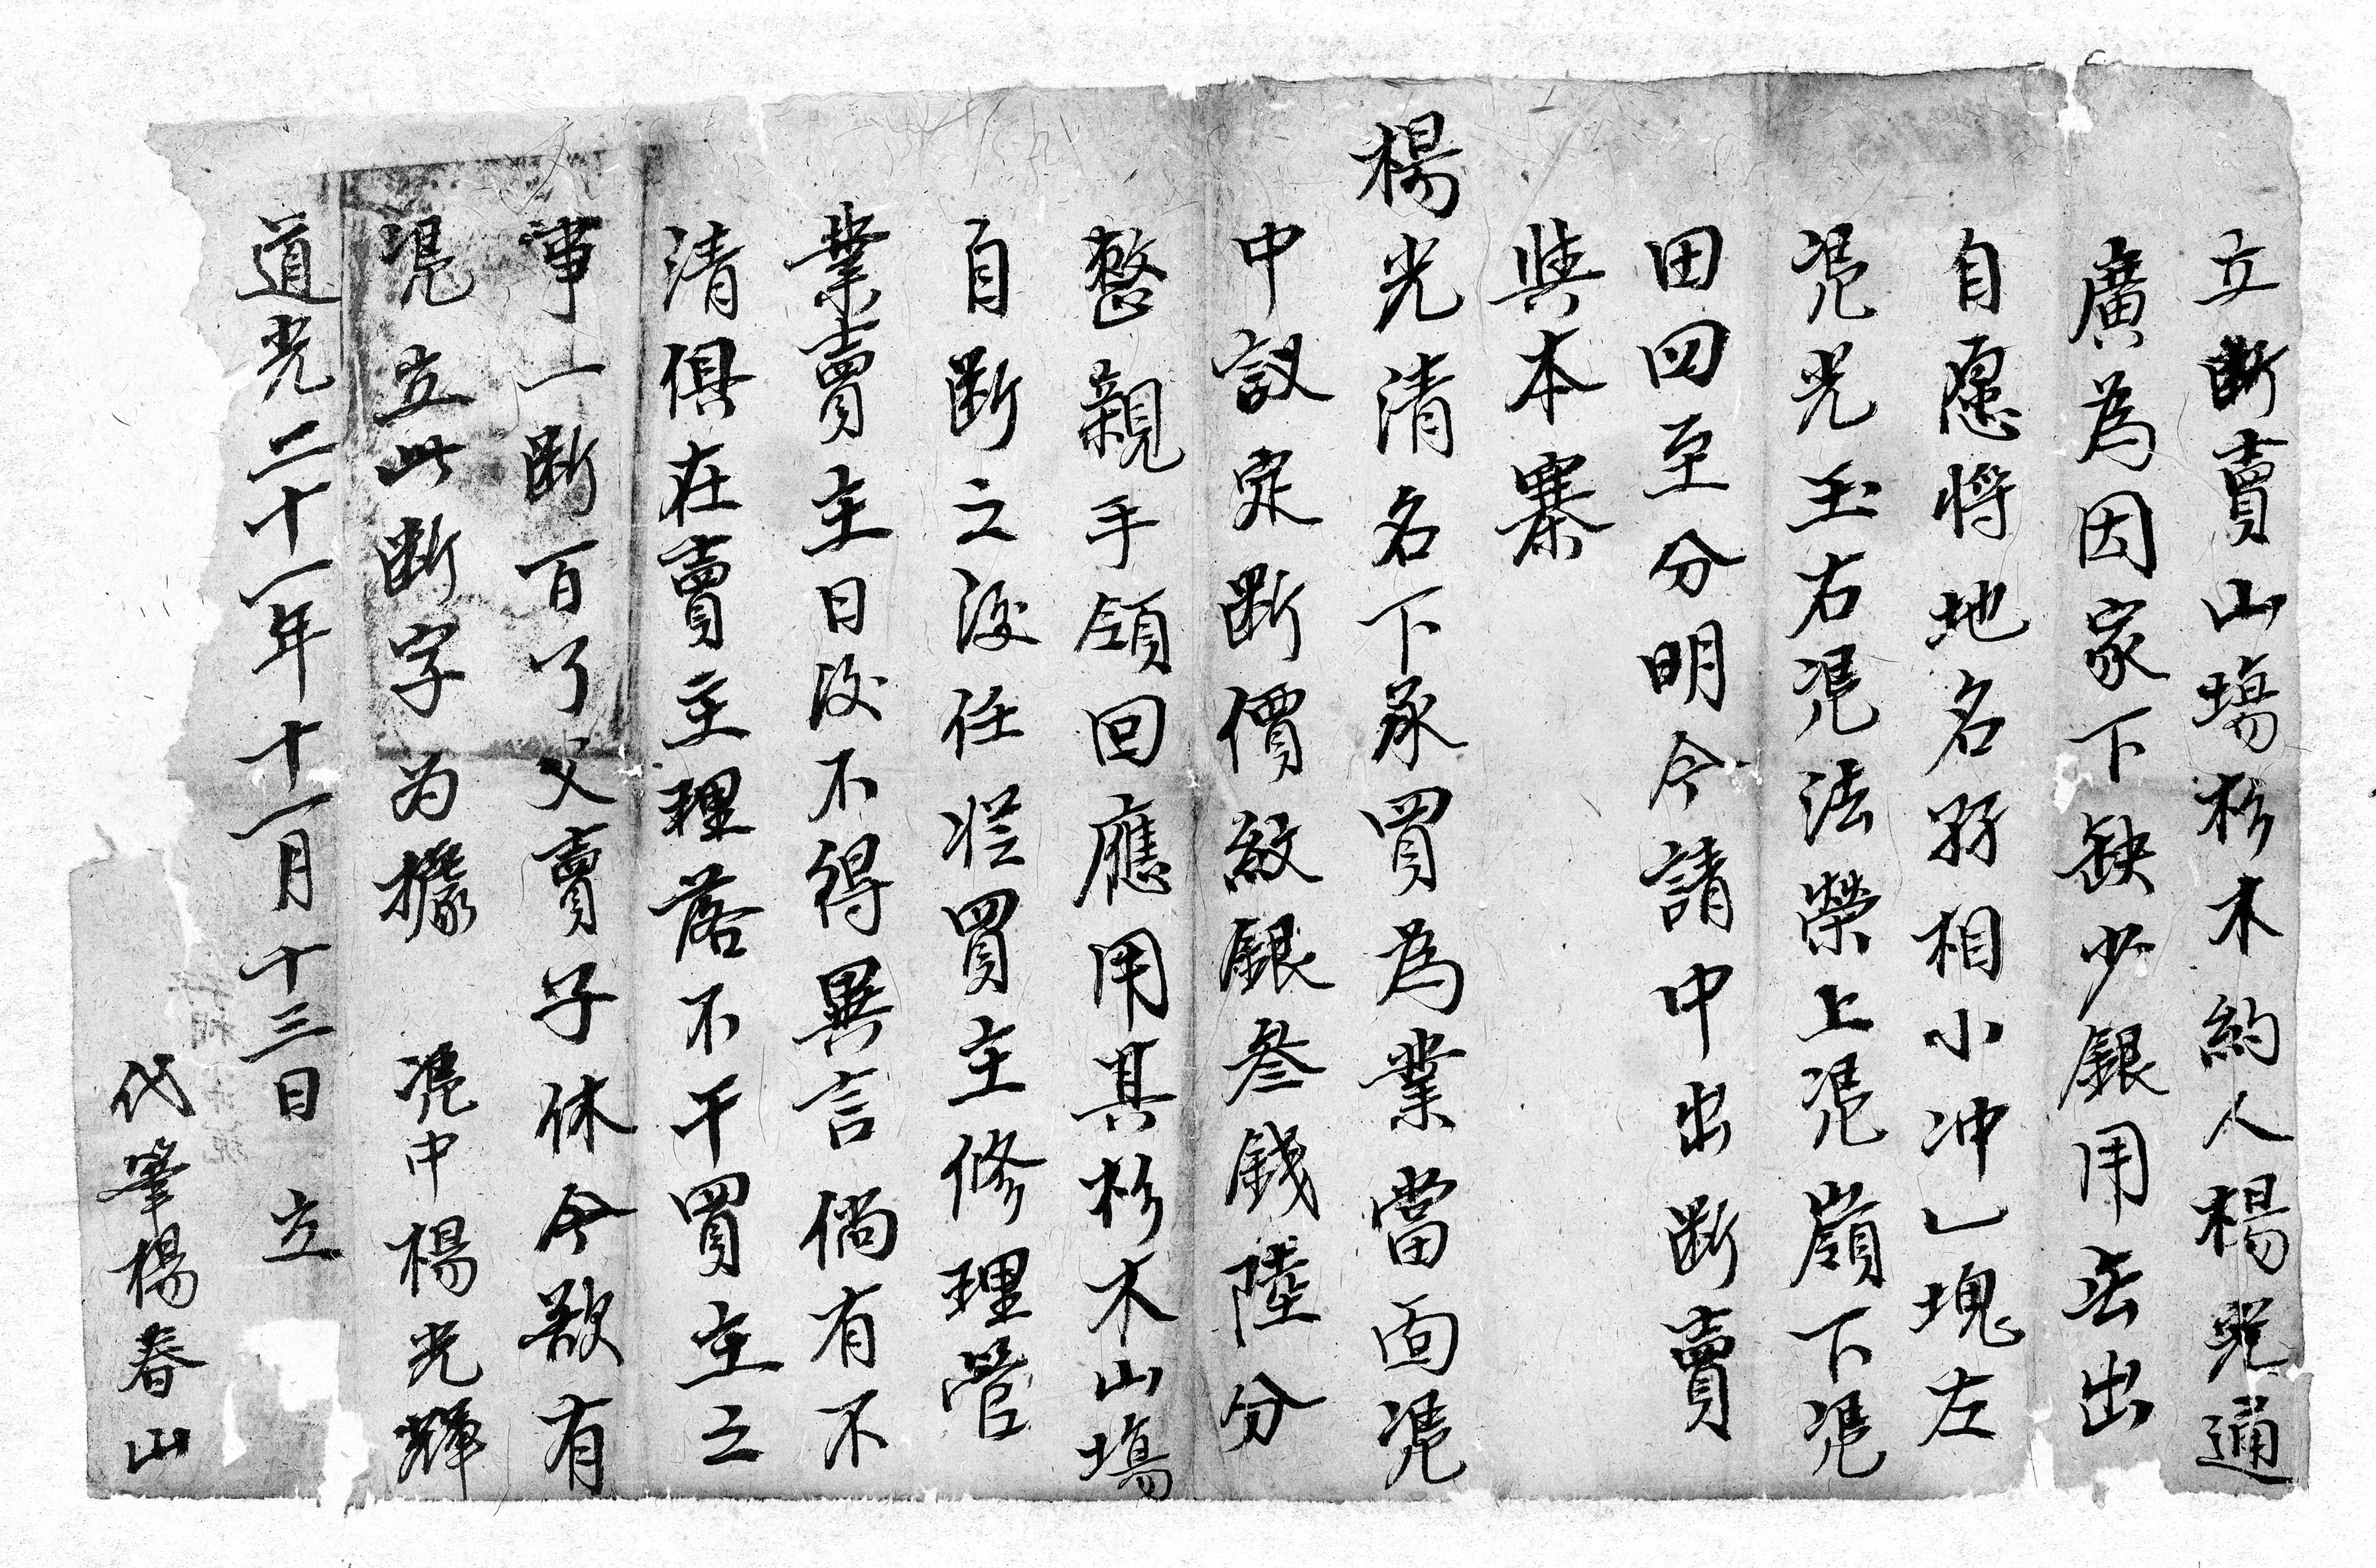 立断賣山塲杉木約人楊光通
廣為因家下缺少銀用無出
自愿将地名孖相小冲乚塊左
凴光玉右凴法榮上凴嶺下凴
田四至分明今請中出断賣
與本寨
楊光清名下承買為業當面凴
中議定断價紋銀叄錢陸分
整親手領回應用其杉木山塲
自断之後任从買主修理管
業賣主日後不得異言倘有不
清俱在賣主理落不干買主之
事一断百了父賣子休今欲有
凴立此断字为據 凴中楊光輝
道光二十一年十一月十三日 立
代筆楊春山